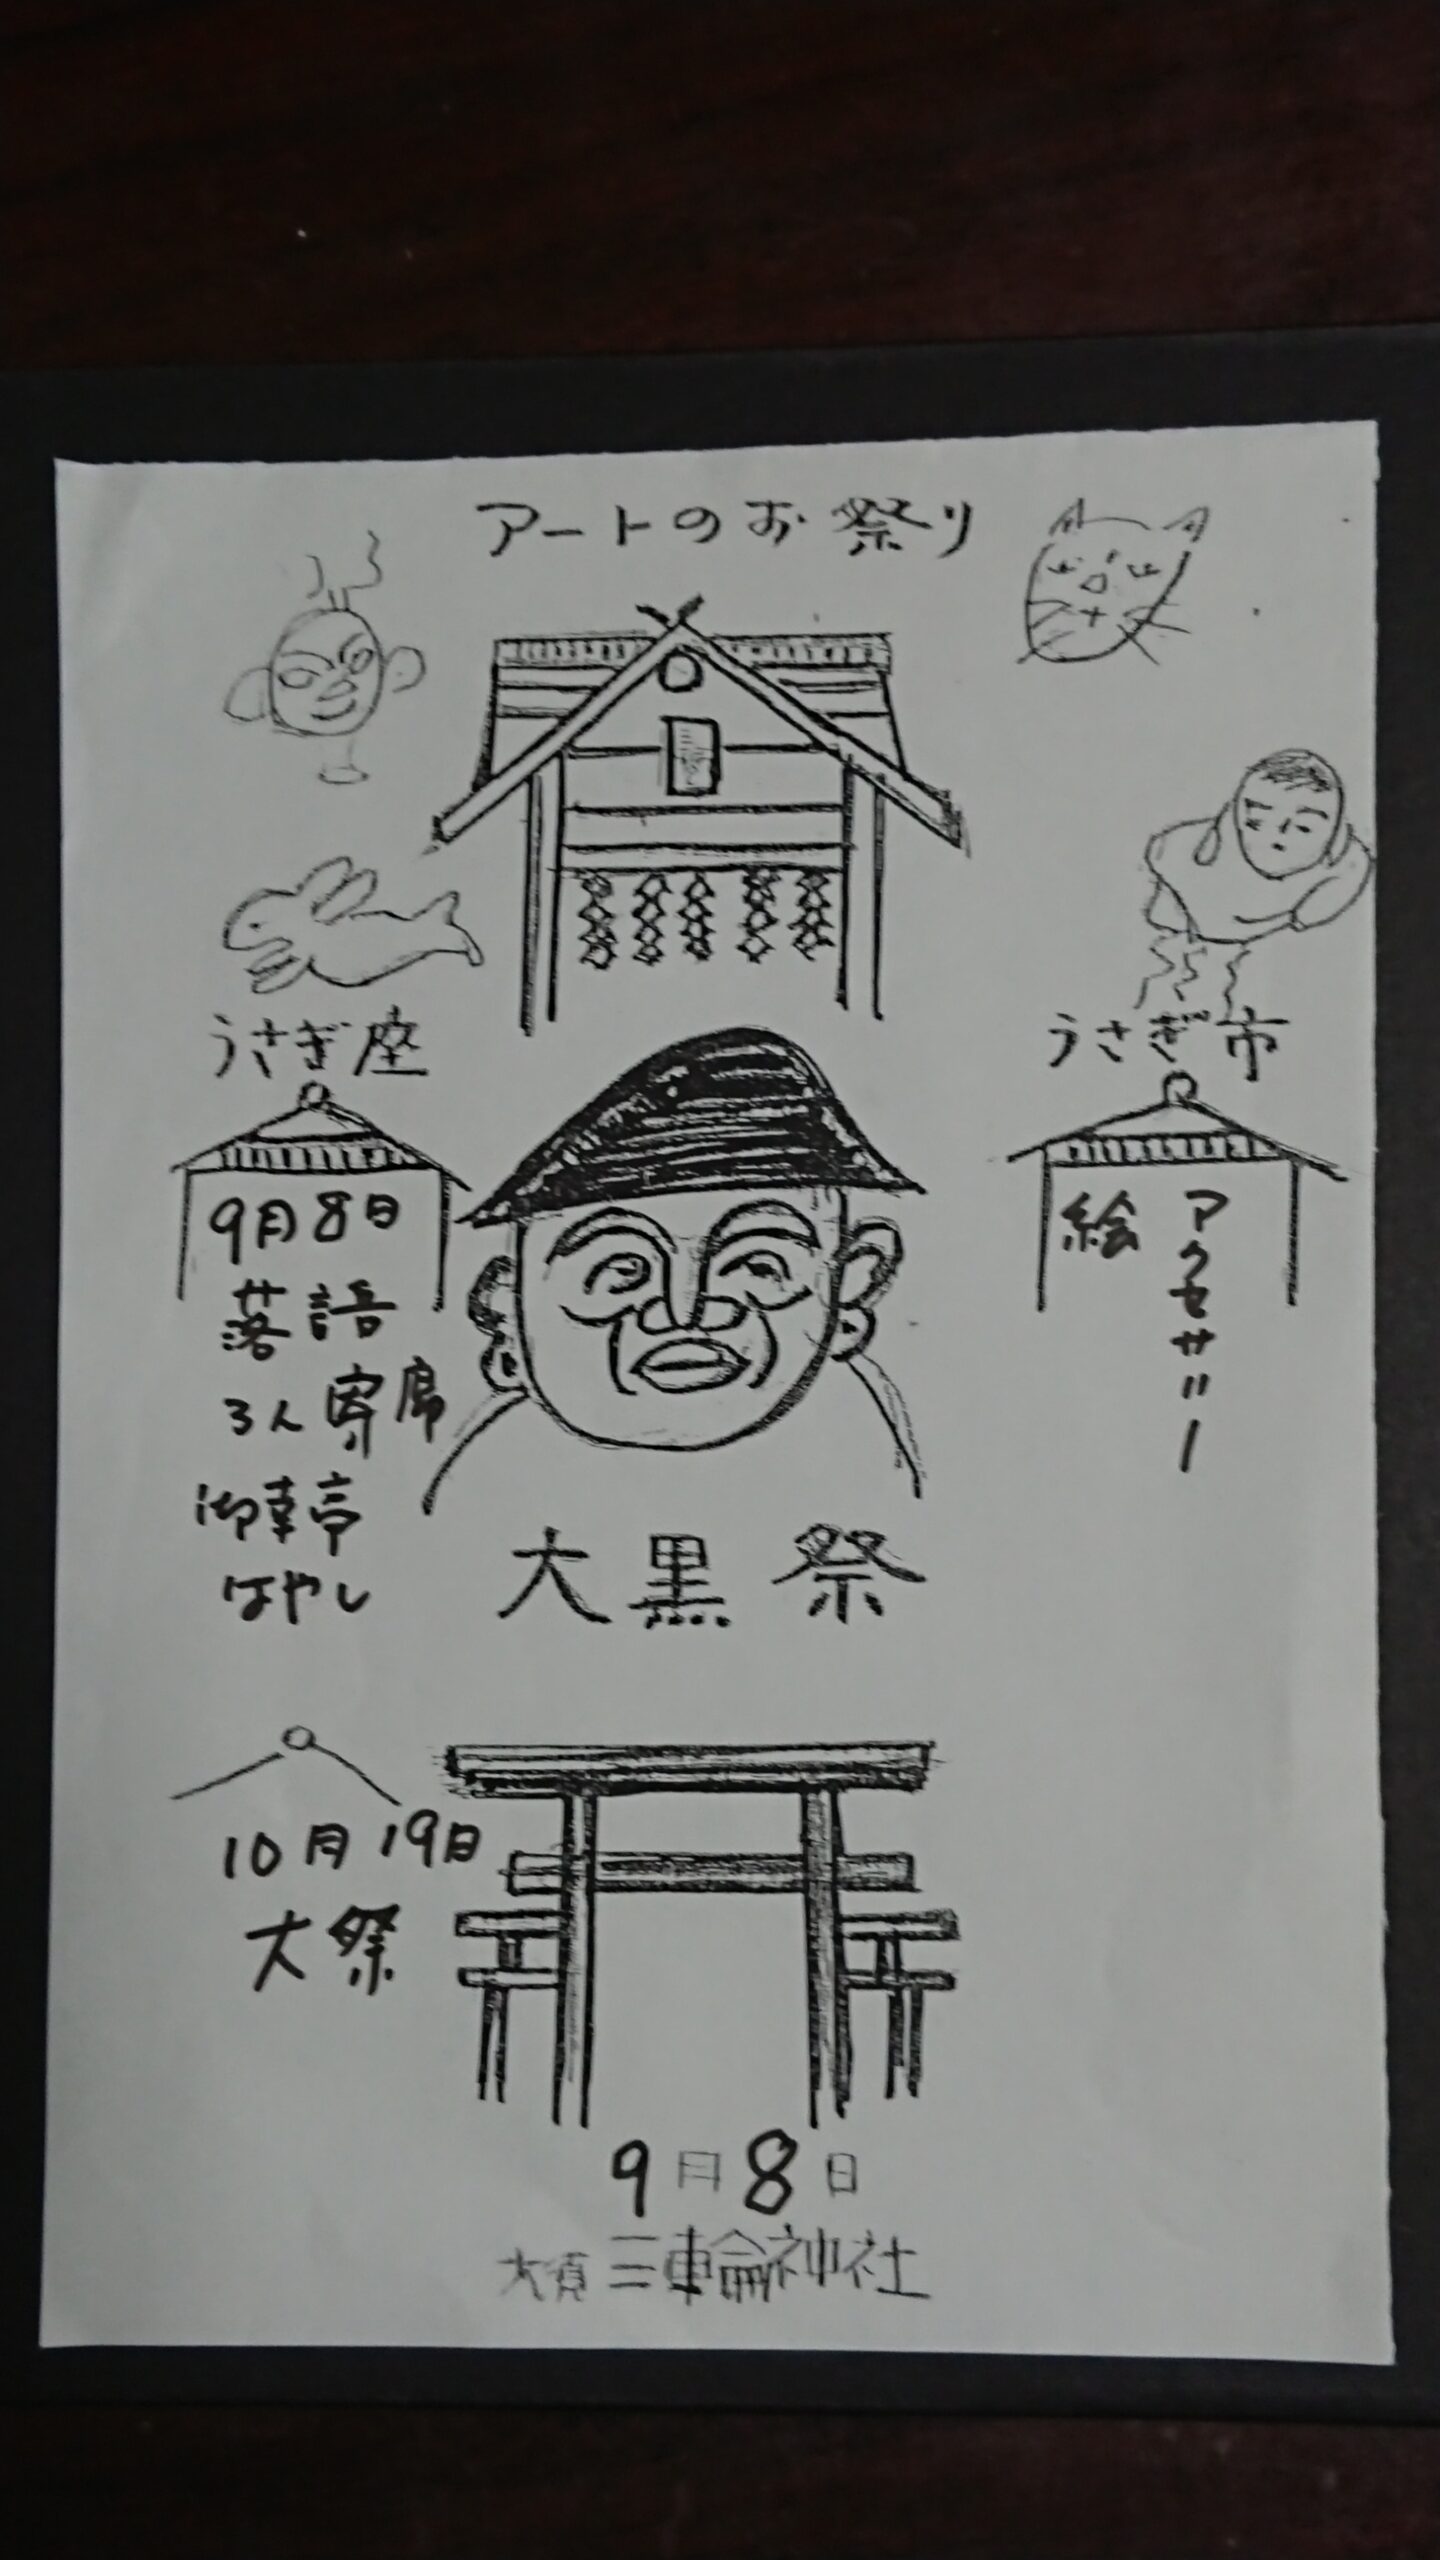 アートのお祭り
うさぎ座
9月8日
落語
3人寄席
御幸亭
はやし
うさぎ市
アクセサリー
絵
大黒祭
10月19日
大祭
9月8日
大須三輪神社